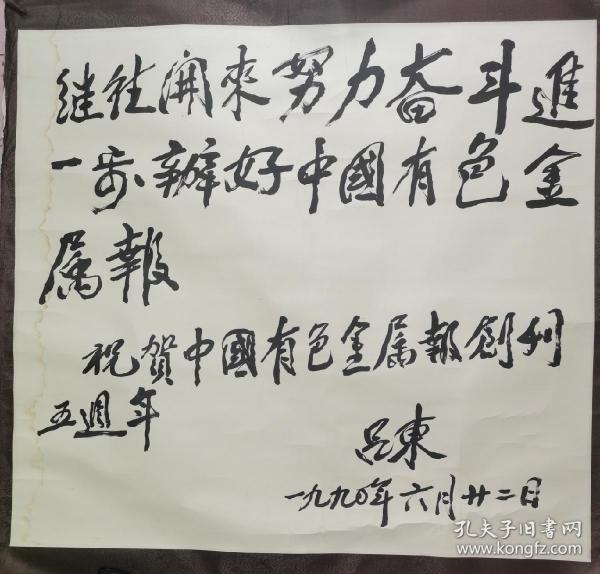 继往開來努力奋斗進
一步辦好中國有色金
属報
祝賀中國有色金属報創刊
五週年
吕東
一九九〇年六月廿二日
孔夫子旧书网
www.kongfz.com